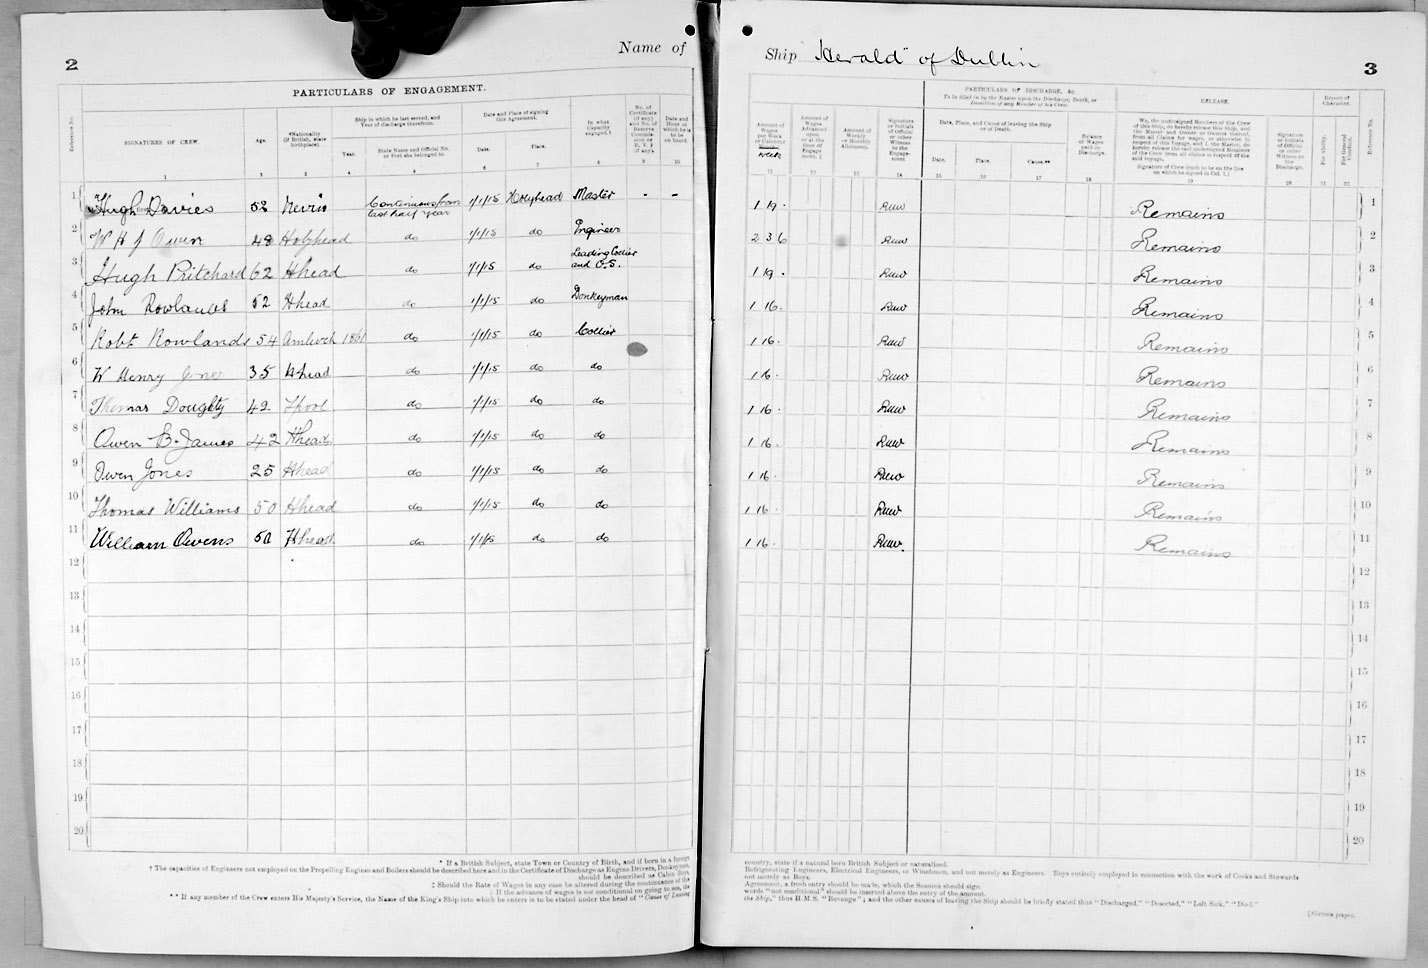 2
Name of
PARTICULARS OF ENGAGEMENT.
Reference No.
SIGNATURES OF CREW.
Age.
*Nationality (if British, state birthplace).
Ship in which he last served, and Year of discharge therefrom.
Year.
State Name and Official No. or Port she belonged to.
Date and Place of signing this Agreement.
Date.
Place.
In what Capacity engaged.†
No. of Certificate (if any) and No. of Reserve Commission or R.V.2 (if any).
Date and Hour at which he is to be on board.
1 2 3 4 5 6 7 8 9 10
1 Hugh Davies 52 Nevin Continuous from last half year 1/1/15 Holyhead Master - -
2 W H J Owen 48 Holyhead do 1/1/15 do Engineer
3 Hugh Pritchard 62 Hhead do 1/1/15 do Leading Collier and O.S.
4 John Rowlands 52 Hhead do 1/1/15 do Donkeyman
5 Robt Rowlands 54 Amlwch 1861 do 1/1/15 do Collier
6 W Henry Jones 35 Hhead do 1/1/15 do do
7 Thomas Doughty 42 do 1/1/15 do do
8 Owen B. James 42 Hhead do 1/1/15 do do
9 Owen Jones 25 Hhead do 1/1/15 do do
10 Thomas Williams 50 Hhead do 1/1/15 do do
11 William Owens 50 Hhead do 1/1/15 do do
12
13
14
15
16
17
18
19
20
* If a British Subject, state Town or Country of Birth, and if born in a foreign
† The capacities of Engineers not employed on the Propelling Engines and Boilers should be described here and in the Certificate of Discharge as Engine Drivers, Donkeymen,
should be described as Cabin Boys,
‡ Should the Rate of Wages in any case be altered during the continuance of the
| If the advance of wages is not conditional on going to sea, the
** If any member of the Crew enters His Majesty's Service, the Name of the King's Ship into which he enters is to be stated under the head of "Cause of Leaving
Ship "Herald" of Dublin
3
Amount of Wages per Week or Calendar
week
Amount of Wages Advanced upon or at the time of Engagement.
Amount of Weekly or Monthly Allotment.
Signature or Initials of Official or other Witness to the Engagement
PARTICULARS OF DISCHARGE, &c.
To be filled in by the Master upon the Discharge, Death, or Desertion of any Member of his Crew.
Date, Place, and Cause of leaving the Ship or of Death.
Date.
Place.
Cause.**
Balance of Wages paid on Discharge.
RELEASE.
We, the undersigned Members of the Crew of this Ship, do hereby release this Ship, and the Master and Owner or Owners thereof, from all Claims for wages, or otherwise in respect of this Voyage, and I, the Master, do hereby release the said undersigned Members of the Crew from all claims in respect of the said voyage.
Signature of Crew (each to be on the line on which he signed in Col. 1.)
Signature or Initials of Official or other Witness to the Discharge.
Report of Character.
For Ability.
For General Conduct.
Reference No.
11 12 13 14 15 16 17 18 19 20 21 22
1 19 - Remains 1
2 3 6 Remains 2
1 19 - Remains 3
1 16 - Remains 4
1 16 - Remains 5
1 16 - Remains 6
1 16 - Remains 7
1 16 - Remains 8
1 16 - Remains 9
1 16 - Remains 10
1 16 - Remains 11
12
13
14
15
16
17
18
19
20
country, state if a natural born British Subject or naturalised.
Refrigerating Engineers, Electrical Engineers, or Winchmen, and not merely as Engineers. Boys entirely employed in connection with the work of Cooks and Stewards
not merely as Boys.
Agreement, a fresh entry should be made, which the Seamen should sign.
words "not conditional" should be inserted above the entry of the amount.
the Ship," thus H.M.S. "Revenge"; and the other causes of leaving the Ship should be briefly stated thus "Discharged," "Deserted," "Left Sick," "Died."
[Sixteen pages.